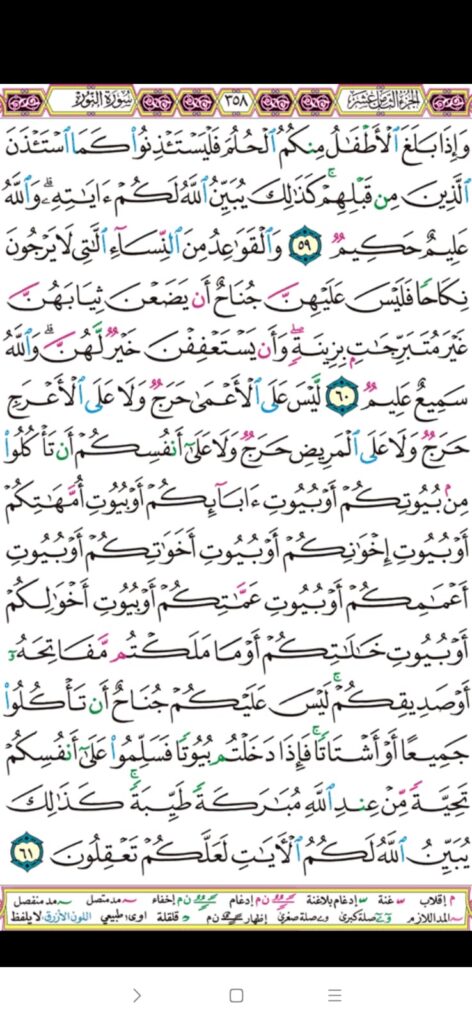 الجزء الثامن عشر ٣٥٨ سورة النور
وَإِذَا بَلَغَ ٱلْأَطْفَٰلُ مِنكُمُ ٱلْحُلُمَ فَلْيَسْتَـْٔذِنُوا۟ كَمَا ٱسْتَـْٔذَنَ
ٱلَّذِينَ مِن قَبْلِهِمْ ۚ كَذَٰلِكَ يُبَيِّنُ ٱللَّهُ لَكُمْ ءَايَٰتِهِۦ ۗ وَٱللَّهُ
عَلِيمٌ حَكِيمٌ ٥٩ وَٱلْقَوَٰعِدُ مِنَ ٱلنِّسَآءِ ٱلَّٰتِى لَا يَرْجُونَ
نِكَاحًا فَلَيْسَ عَلَيْهِنَّ جُنَاحٌ أَن يَضَعْنَ ثِيَابَهُنَّ
غَيْرَ مُتَبَرِّجَٰتٍۭ بِزِينَةٍ ۖ وَأَن يَسْتَعْفِفْنَ خَيْرٌ لَّهُنَّ ۗ وَٱللَّهُ
سَمِيعٌ عَلِيمٌ ٦٠ لَّيْسَ عَلَى ٱلْأَعْمَىٰ حَرَجٌ وَلَا عَلَى ٱلْأَعْرَجِ
حَرَجٌ وَلَا عَلَى ٱلْمَرِيضِ حَرَجٌ وَلَا عَلَىٰٓ أَنفُسِكُمْ أَن تَأْكُلُوا۟
مِنۢ بُيُوتِكُمْ أَوْ بُيُوتِ ءَابَآئِكُمْ أَوْ بُيُوتِ أُمَّهَٰتِكُمْ
أَوْ بُيُوتِ إِخْوَٰنِكُمْ أَوْ بُيُوتِ أَخَوَٰتِكُمْ أَوْ بُيُوتِ
أَعْمَٰمِكُمْ أَوْ بُيُوتِ عَمَّٰتِكُمْ أَوْ بُيُوتِ أَخْوَٰلِكُمْ
أَوْ بُيُوتِ خَٰلَٰتِكُمْ أَوْ مَا مَلَكْتُم مَّفَاتِحَهُۥٓ
أَوْ صَدِيقِكُمْ ۚ لَيْسَ عَلَيْكُمْ جُنَاحٌ أَن تَأْكُلُوا۟
جَمِيعًا أَوْ أَشْتَاتًا ۚ فَإِذَا دَخَلْتُم بُيُوتًا فَسَلِّمُوا۟ عَلَىٰٓ أَنفُسِكُمْ
تَحِيَّةً مِّنْ عِندِ ٱللَّهِ مُبَٰرَكَةً طَيِّبَةً ۚ كَذَٰلِكَ
يُبَيِّنُ ٱللَّهُ لَكُمُ ٱلْءَايَٰتِ لَعَلَّكُمْ تَعْقِلُونَ ٦١
م إقلاب غنة إدغام بلاغنة ن م إدغام ن م إخفاء مد متصل مد منفصل
المد اللازم صلة كبرى صلة صغرى إظهار ن م قلقلة اوى: طبيعي اللون الأزرق لا يلفظ